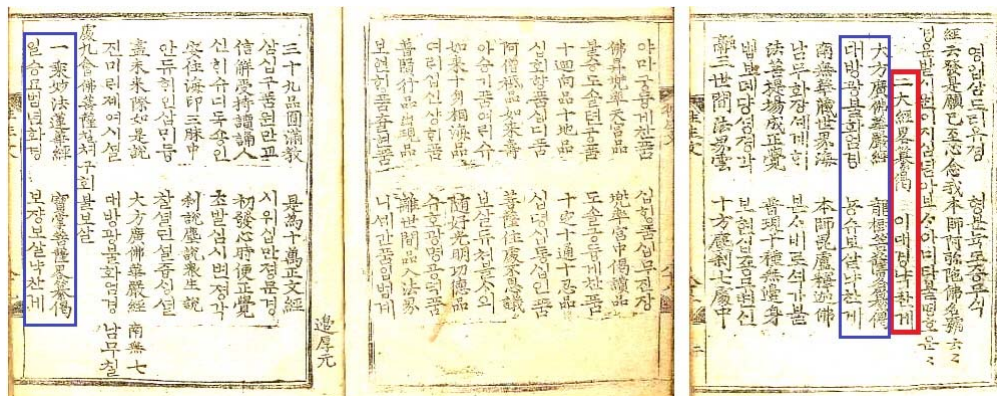 經云發是願已至心念我本師阿彌陁佛名號云云
경운발시원이지심념아본ᄉᆞ아미타불명호운운
二大經畧纂偈 이대경냑찬게
大方廣佛華嚴經 龍樹菩薩畧纂偈
대방광불화엄경 농슈보살냑찬게
南無華藏世界海 本師毘盧釋迦佛
남무화장셰계ᄒᆡ 본ᄉᆞ비로셕가불
法菩提場成正覺 普現十種無邊身
법보뎨댱셩졍각 보현십죵무변신
十方塵刹七處中
야마궁듕게찬품 십ᄒᆡᆼ품십무진장
佛昇兜率天宮品 兜率宮中偈讃品
불승도솔텬궁품 도솔궁듕게찬품
十迴向品十地品 十定十通十忍品
십회향품십디품 십뎡십통십인품
阿僧秪品如來壽 菩薩住處不思議
아승기품여ᄅᆡ슈 보살듀쳐블ᄉᆞ의
如來十身相海品 隨好光明功德品
여ᄅᆡ십신상ᄒᆡ품 슈호광명공덕품
普賢行品出現品 離世間品入法界
보현ᄒᆡᆼ품츌현품 니셰간품입법계
邊厚元
三十九品圓滿敎 是為十萬正文經
삼십구품원만교 시위십만졍문경
信解受持讀誦人 初發心時便正覺
신ᄒᆡ슈디독숑인 초발심시변졍각
安住海印三昧中 刹說塵說衆生說
안듀ᄒᆡ인삼ᄆᆡ듕 찰셜딘셜즁ᄉᆡᆼ셜
盡未來際如是說 大方廣佛華嚴經 南無七
진미ᄅᆡ제여시셜 대방광불화엄경 남무칠
處九會佛菩薩쳐구회불보살
一乘妙法蓮華經 寶掌菩薩畧纂偈
일승묘법년화경 보쟝보살냑찬게